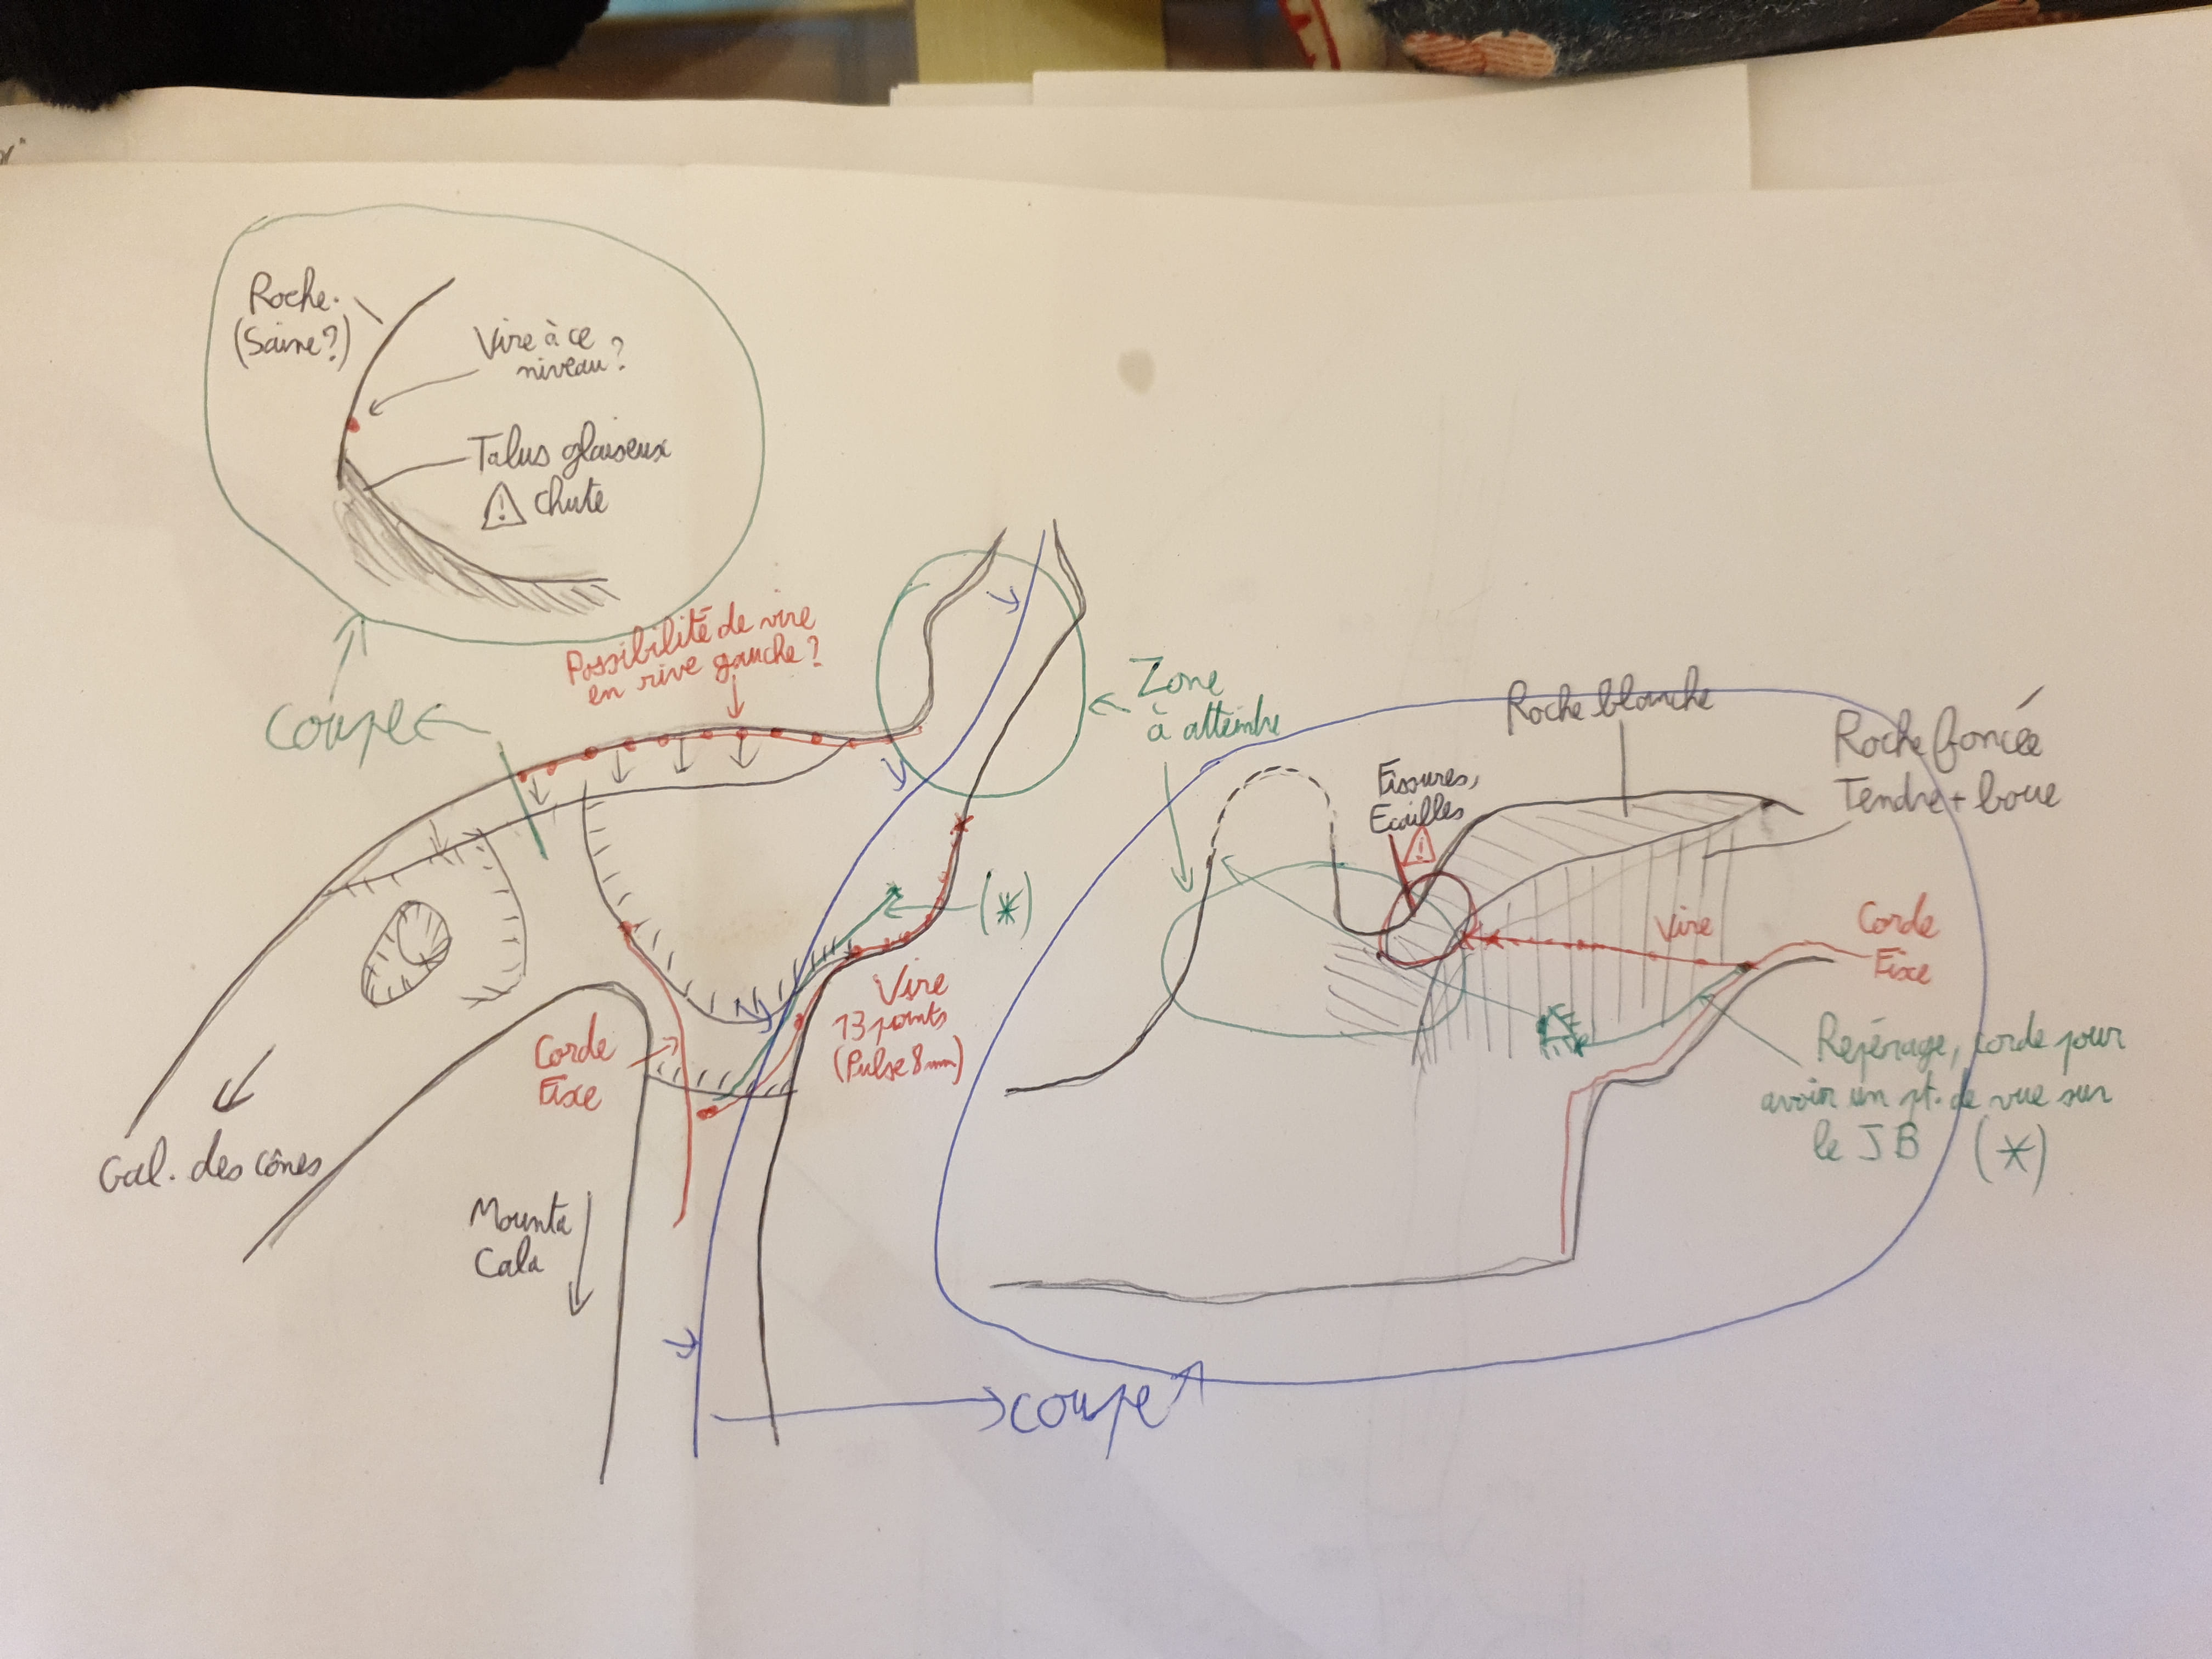 Roche
(Saine?)
Vire à ce
niveau?
Talus glaiseux
! chute
Possibilité de vire
en rive gauche?
Coupe
Zone
à atteindre
Roche blanche
Roche foncée
Tendre + boue
Fissures,
Ecailles
!
(*)
Vire
Corde
Fixe
Vire
13 points
(Pulse 8mm)
Corde
Fixe
Repérage, corde pour
avoir un pt. de vue sur
le JB (*)
Gal. des cônes
Mounta
Cala
coupe